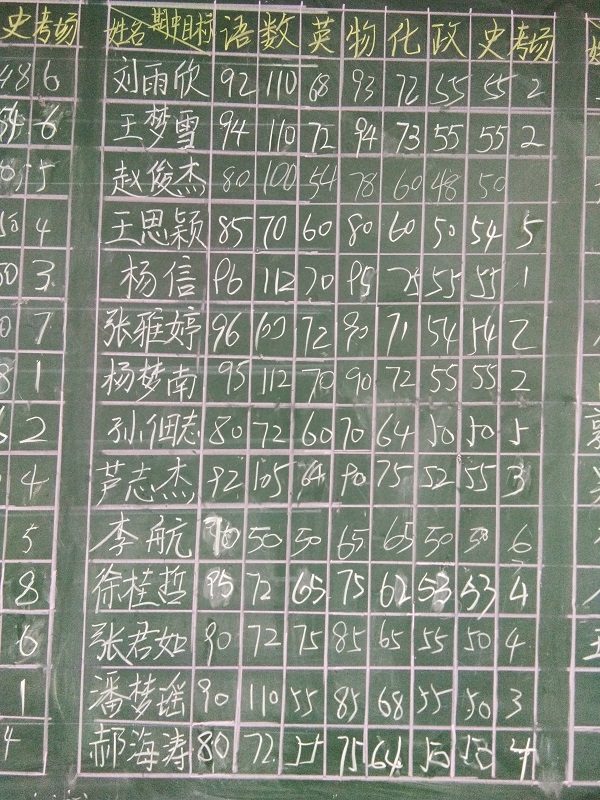 史 考场 姓名 期中目标 语 数 英 物 化 政 史 考场
48 6 刘雨欣 92 110 68 93 72 55 55 2
6 王梦雪 94 110 72 94 73 55 55 2
5 赵俊杰 80 100 54 78 60 48 50
4 王思颖 85 70 60 80 60 50 54 5
3 杨信 96 112 70 95 75 55 55 1
7 张雅婷 96 72 90 71 54 54 2
1 杨梦南 95 112 70 90 72 55 55 2
2 孙佃志 80 72 60 70 64 50 50 5
4 芦志杰 92 105 64 90 75 52 55 3
5 李航 50 50 65 65 50 6
8 徐桂哲 95 72 65 75 62 53 53 4
6 张君如 90 72 75 85 65 55 50 4
1 潘梦瑶 90 110 55 85 68 55 50 3
4 郝海涛 80 72 55 75 64 50 50 4